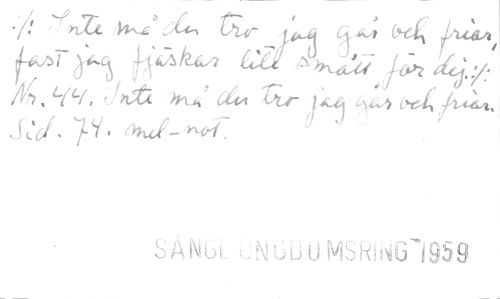 :/: Inte må du tro jag går och friar,
fast jag fjäskar lite smått för dej:/:
Nr. 44. Inte må du tro jag går och friar.
Sid. 74. mel-not.
SÅNGL UNGDOMSRING 1959